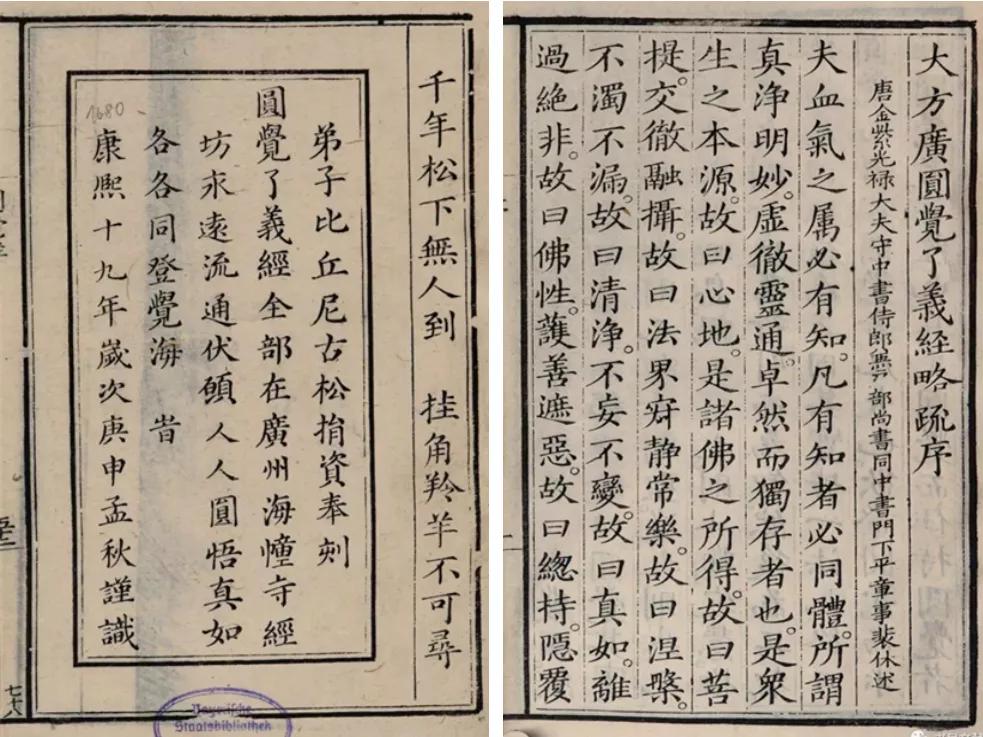 大方廣圓覺了義経略疏序
唐金紫光禄大夫守中書侍郎兼戸部尚書同中書門下平章事裴休述
夫血氣之属必有知。凡有知者必同體。所謂
真净明妙。虛徹靈通。卓然而獨存者也。是衆
生之本源。故曰心地。是諸佛之所得。故曰菩
提。交徹融攝。故曰法界。寂静常樂。故曰涅槃。
不濁不漏。故曰清净。不妄不變。故曰真如。離
過絶非。故曰佛性。護善遮惡。故曰緫持。隱覆
千年松下無人到 挂角羚羊不可尋
弟子比丘尼古松捐資奉刻
圓覺了義經全部在廣州海幢寺經
坊永遠流通伏願人人圓悟真如
各各同登覺海 旹
康熙十九年歲次庚申孟秋謹識
1680
七六
Bayerische
Staatsbibliothek